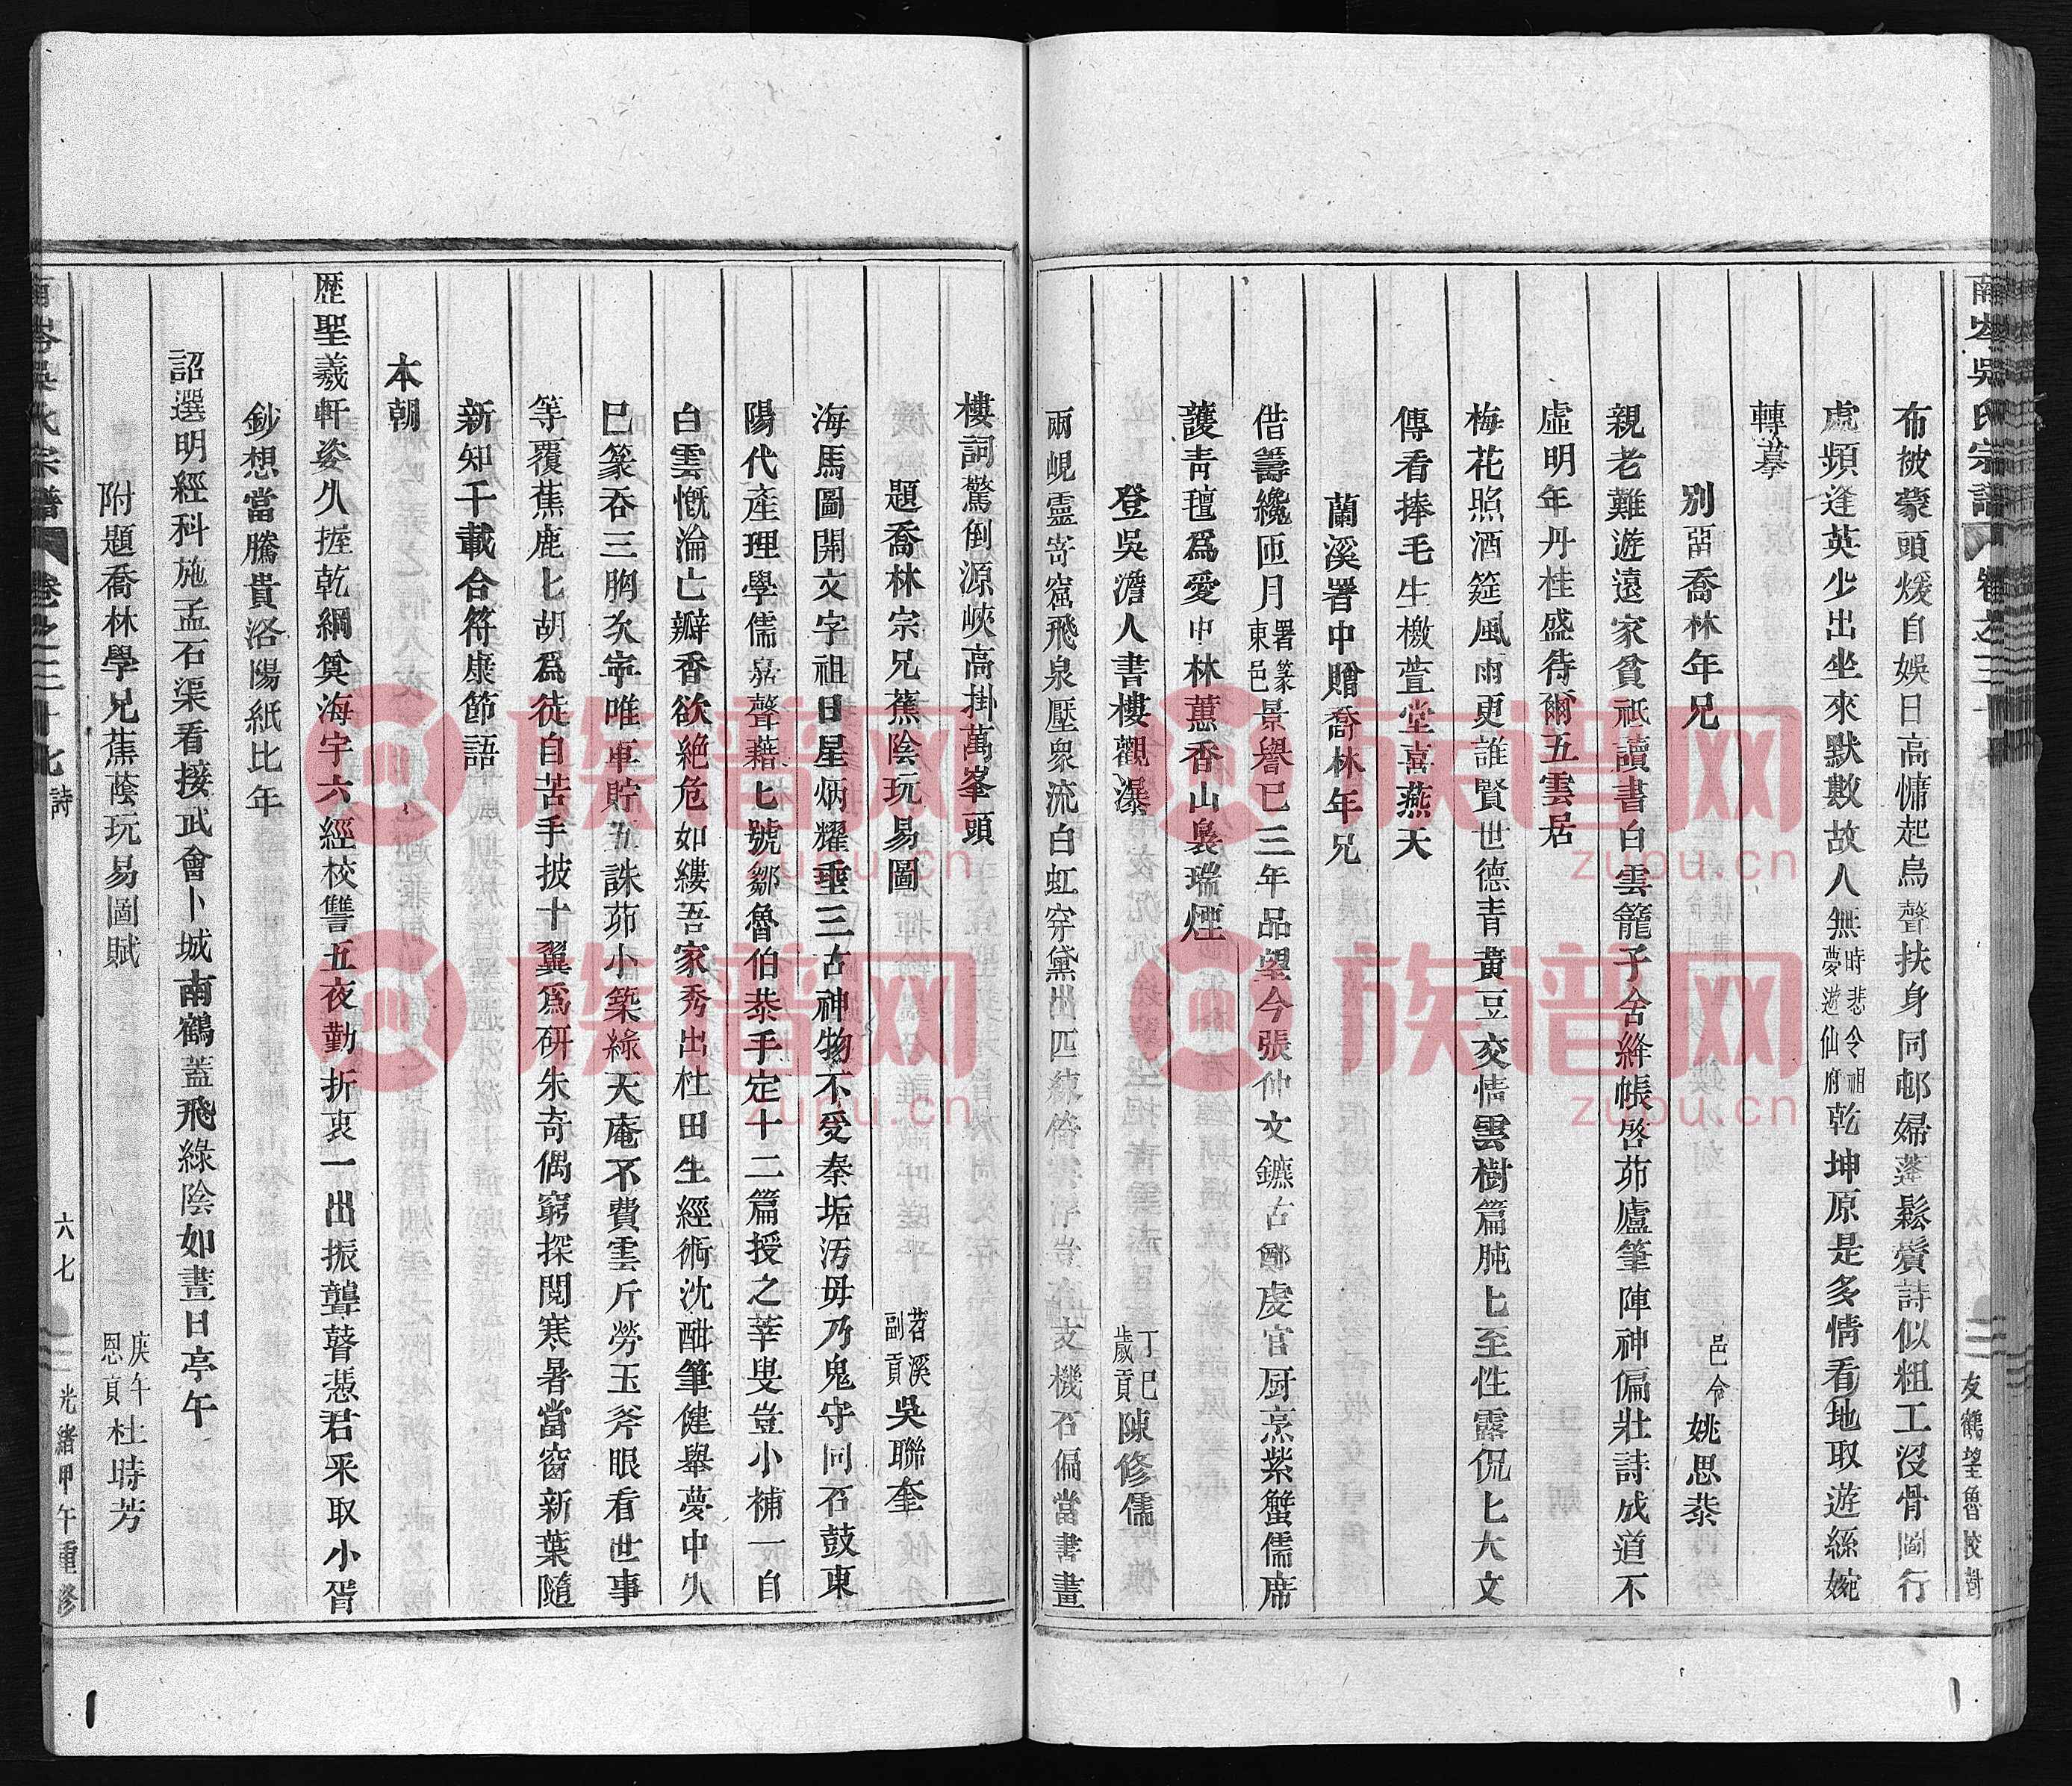 南岑吳氏宗譜 卷之三十
友鶴堂魯校對
布被蒙頭煖自娛日高慵起烏聲扶身同邨婦蓬鬆鬢詩似粗工沒骨圖行
處頻逢英少出坐來默數故人無時悲令祖夢遊仙府乾坤原是多情看地取遊絲婉
轉摹
別畱喬林年兄 邑令姚思恭
親老難遊遠家貧祇讀書白雲籠子舍絳帳啓茆廬筆陣神偏壯詩成道不
虛明年丹桂盛待爾五雲居
梅花照酒筵風雨更誰賢世德青黃豆交情雲樹篇肫七至性露侃七大文
傳看捧毛生檄萱堂喜燕天
蘭溪署中贈喬林年兄
借籌纔匝月署篆東邑景譽已三年品望今張仲文鑣古鄭虔官厨烹紫蟹儒席
護青氊爲愛中林蕙香山裊瑞煙
登吳澹人書樓觀瀑 丁巳歲貢陳修儒
兩峴靈寄窟飛泉壓衆流白虹穿黛出匹練 支機石偏當書畫
樓詞驚倒源峽高掛萬峯頭
題喬林宗兄蕉陰玩易圖 苕溪副貢吳聯奎
海馬圖開文字祖日星炳耀垂三古神物不受秦垢汚毋乃鬼守同石鼓東
陽代產理學儒嘉聲藉七號鄒魯伯恭手定十二篇授之莘叟豈小補一自
白雲慨淪亡瓣香欲絕危如縷吾家秀出杜田生經術沈酣筆健舉夢中久
已篆吞三胸次寧唯車貯五誅茆小築綠天庵不費雲斤勞玉斧眼看世事
等覆蕉鹿七胡爲徒自苦手披十翼爲研朱奇偶窮探閱寒暑當窗新葉隨
新知千載合符康節語
本朝
歷聖羲軒姿久握乾綱奠海宇六經校讐五夜勤折衷一出振聾瞽憑君釆取小胥
鈔想當騰貴洛陽紙比年
詔選明經科施孟石渠看接武會卜城南鶴蓋飛綠陰如晝日亭午
附題喬林學兄蕉蔭玩易圖賦 庚午恩貢杜時芳
南岑吳氏宗譜 卷之三十七 詩 六七 光緒甲午重修